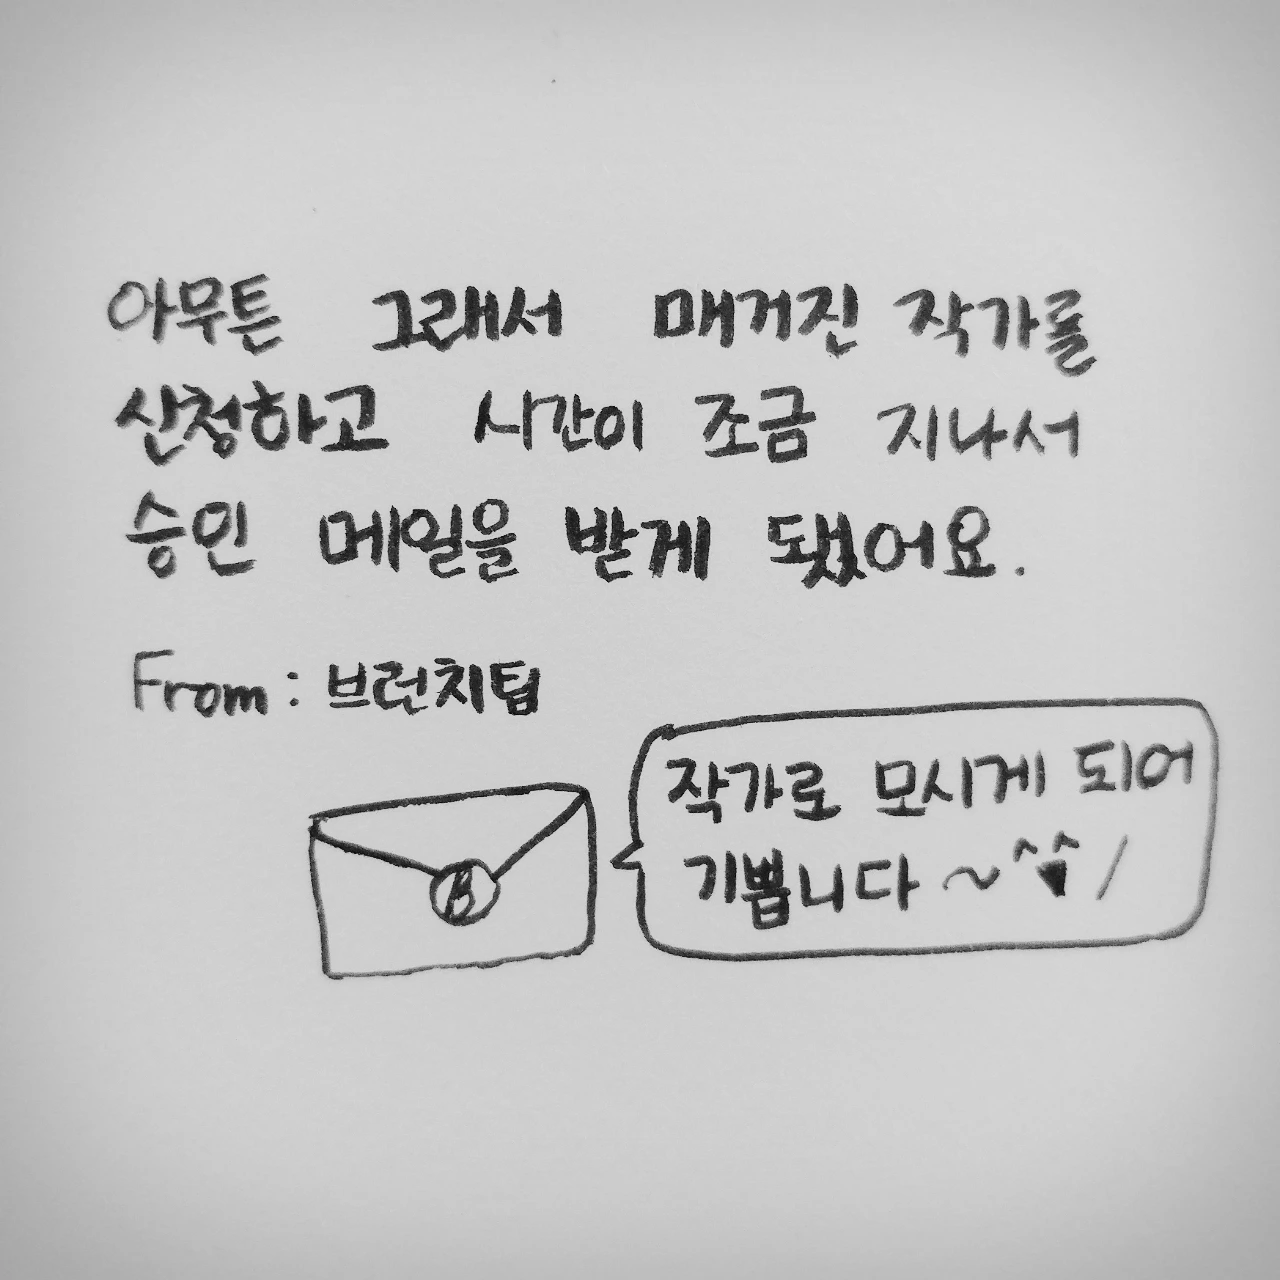 아무튼 그래서 매거진 작가를
신청하고 시간이 조금 지나서
승인 메일을 받게 됐어요.
From : 브런치팀
작가로 모시게 되어
기쁩니다 ~^▼^/
B